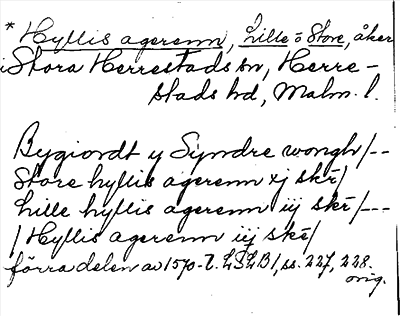 * Hyllis agerenn, Lille o Store, åker
i Stora Herrestads sn, Herre-
stads hd, Malm. l.
Bygiordt y Syndre wongh/--
Store hyllis agerenn xj skr̄/
Lille hyllis agerenn iij skr̄/---
/Hyllis agerenn iij skr̄/
förra delen av 1570-t. LSLB1, ss. 227, 228.
orig.